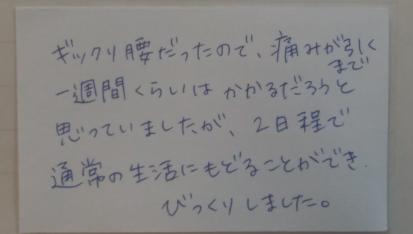 ギックリ腰だったので、痛みが引くまで
一週間くらいはかかるだろうと
思っていましたが、2日程で
通常の生活にもどることができ
びっくりしました。